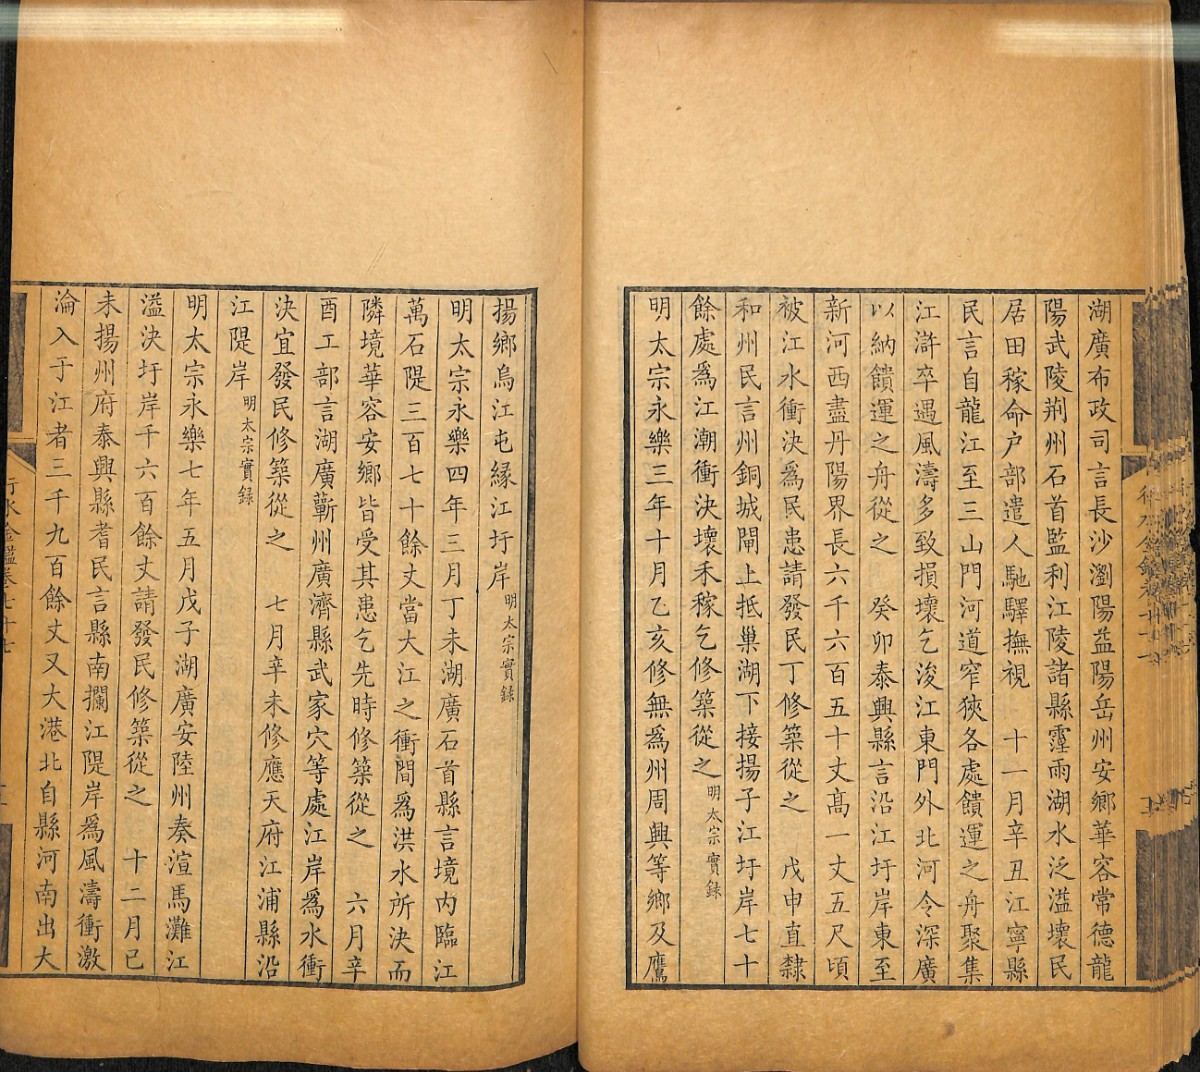 湖廣布政司言長沙瀏陽益陽岳州安鄉華容常德龍
陽武陵荆州石首監利江陵諸縣霪雨湖水泛溢壞民
居田稼命户部遣人馳驛撫視　十一月辛丑江寧縣
民言自龍江至三山門河道窄狹各處饋運之舟聚集
江滸卒遇風濤多致損壞乞浚江東門外北河令深廣
以納饋運之舟從之　癸卯泰興縣言沿江圩岸東至
新河西盡丹陽界長六千六百五十丈高一丈五尺頃
被江水衝決爲民患請發民丁修築從之　戊申直隸
和州民言州銅城閘上抵巢湖下接揚子江圩岸七十
餘處爲江潮衝決壞禾稼乞修築從之明太宗實録
明太宗永樂三年十月乙亥修無爲州周興等鄉及鷹
揚鄉烏江屯緣江圩岸明太宗實録
明太宗永樂四年三月丁未湖廣石首縣言境内臨江
萬石隄三百七十餘丈當大江之衝間爲洪水所決而
隣境華容安鄉皆受其患乞先時修築從之　六月辛
酉工部言湖廣蘄州廣濟縣武家穴等處江岸爲水衝
決宜發民修築從之　七月辛未修應天府江浦縣沿
江隄岸明太宗實録
明太宗永樂七年五月戊子湖廣安陸州奏渲馬灘江
溢決圩岸千六百餘丈請發民修築從之　十二月已
未揚州府泰興縣耆民言縣南攔江隄岸爲風濤衝激
淪入于江者三千九百餘丈又大港北自縣河南出大
行水金鑑卷七十七